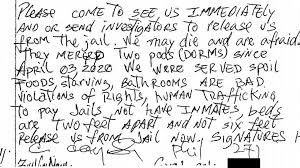 PLEASE COME TO SEE US IMMEDIATELY
AND OR SEND INVESTIGATORS TO RELEASE US
FROM THE JAIL. WE MAY DIE AND ARE AFRAID.
THEY MERGED TWO PODS (DORMS) SINCE
APRIL 03, 2020 WE WERE SERVED SPOIL
FOODS, STARVING, BATHROOMS ARE BAD
VIOLATIONS OF RIGHTS, HUMAN TRAFFICKING,
TO PAY JAILS NOT HAVE INMATES, BEDS
ARE TWO FEET APART AND NOT SIX FEET
RELEASE US FROM JAIL NOW. SIGNATURES